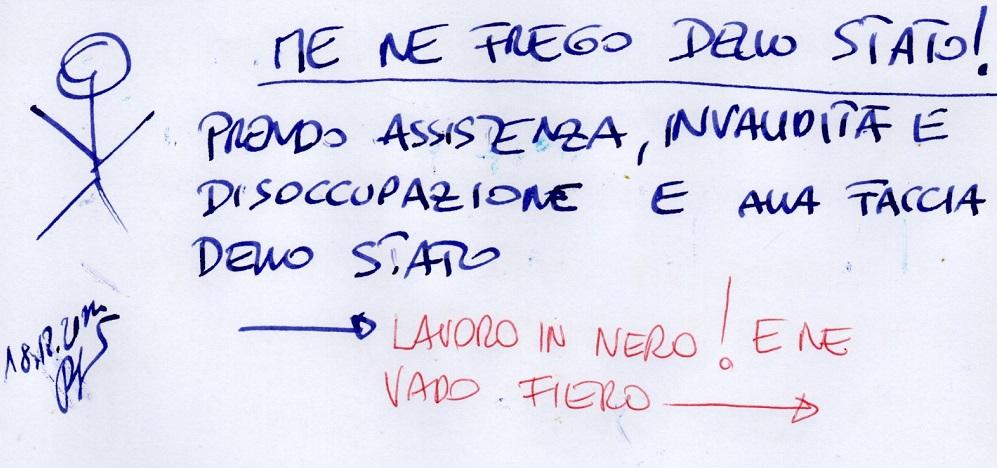 ME NE FREGO DELLO STATO!
PRENDO ASSISTENZA, INVALIDITÀ E
DISOCCUPAZIONE E ALLA FACCIA
DELLO STATO
LAVORO IN NERO! E NE
VADO FIERO